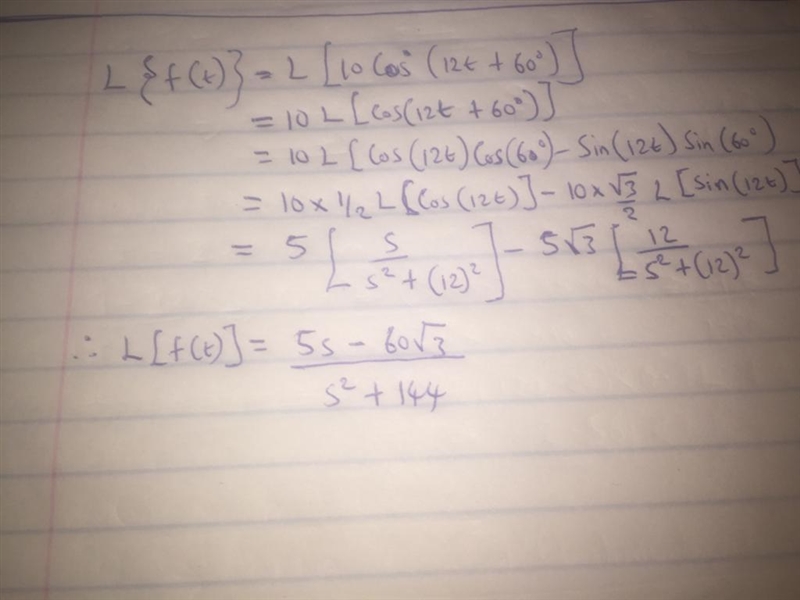 L{f(t)} = L [10 Cos (12t + 60°)]
= 10 L [Cos(12t + 60°)]
= 10 L [Cos(12t) Cos(60°) - Sin(12t) Sin(60°)
= 10 × 1/2 L [Cos(12t)] - 10 × √3/2 L [Sin(12t)]
= 5 [s/(s² + (12)²)] - 5√3 [12/(s² + (12)²)]
∴ L[f(t)] = (5s - 60√3)/(s² + 144)